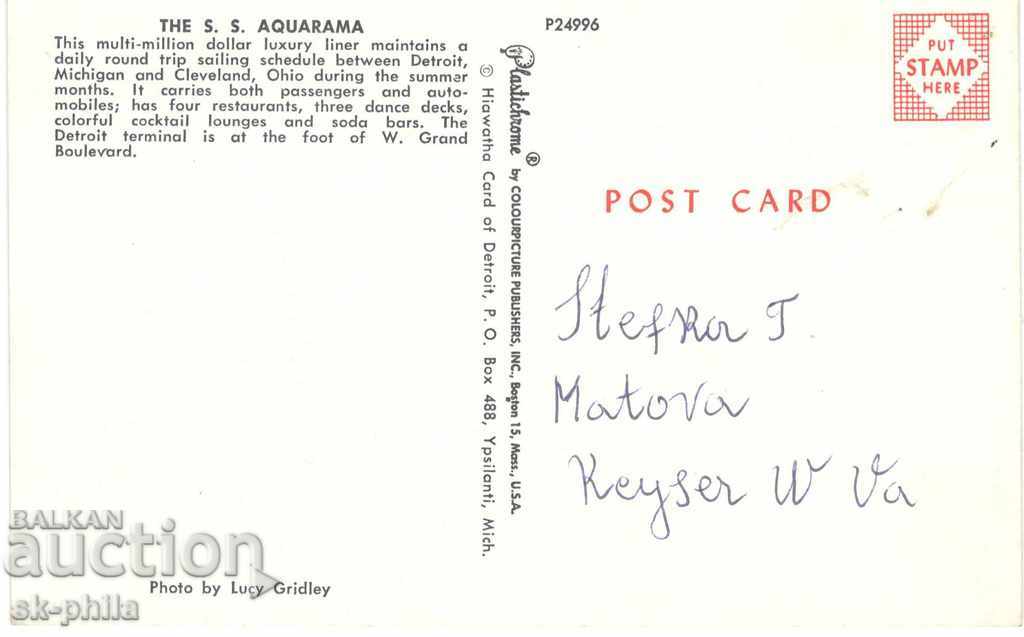 THE S. S. AQUARAMA
This multi-million dollar luxury liner maintains a
daily round trip sailing schedule between Detroit,
Michigan and Cleveland, Ohio during the summer
months. It carries both passengers and auto-
mobiles; has four restaurants, three dance decks,
colorful cocktail lounges and soda bars. The
Detroit terminal is at the foot of W. Grand
Boulevard.
Photo by Lucy Gridley
© Hiawatha Card of Detroit, P. O. Box 488, Ypsilanti, Mich.
Plastichrome ® by COLOURPICTURE PUBLISHERS, INC., Boston 15, Mass., U.S.A.
P24996
PUT
STAMP
HERE
POST CARD
Stefka T.
Matova
Keyser W Va
BALKAN
auction
sk-phila